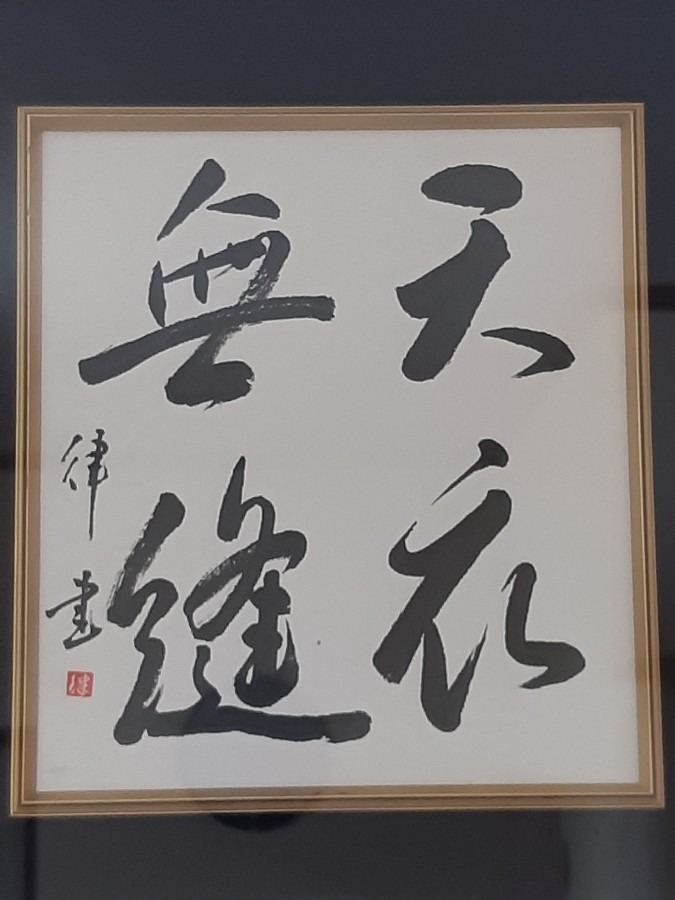 天衣
無縫
律書
律